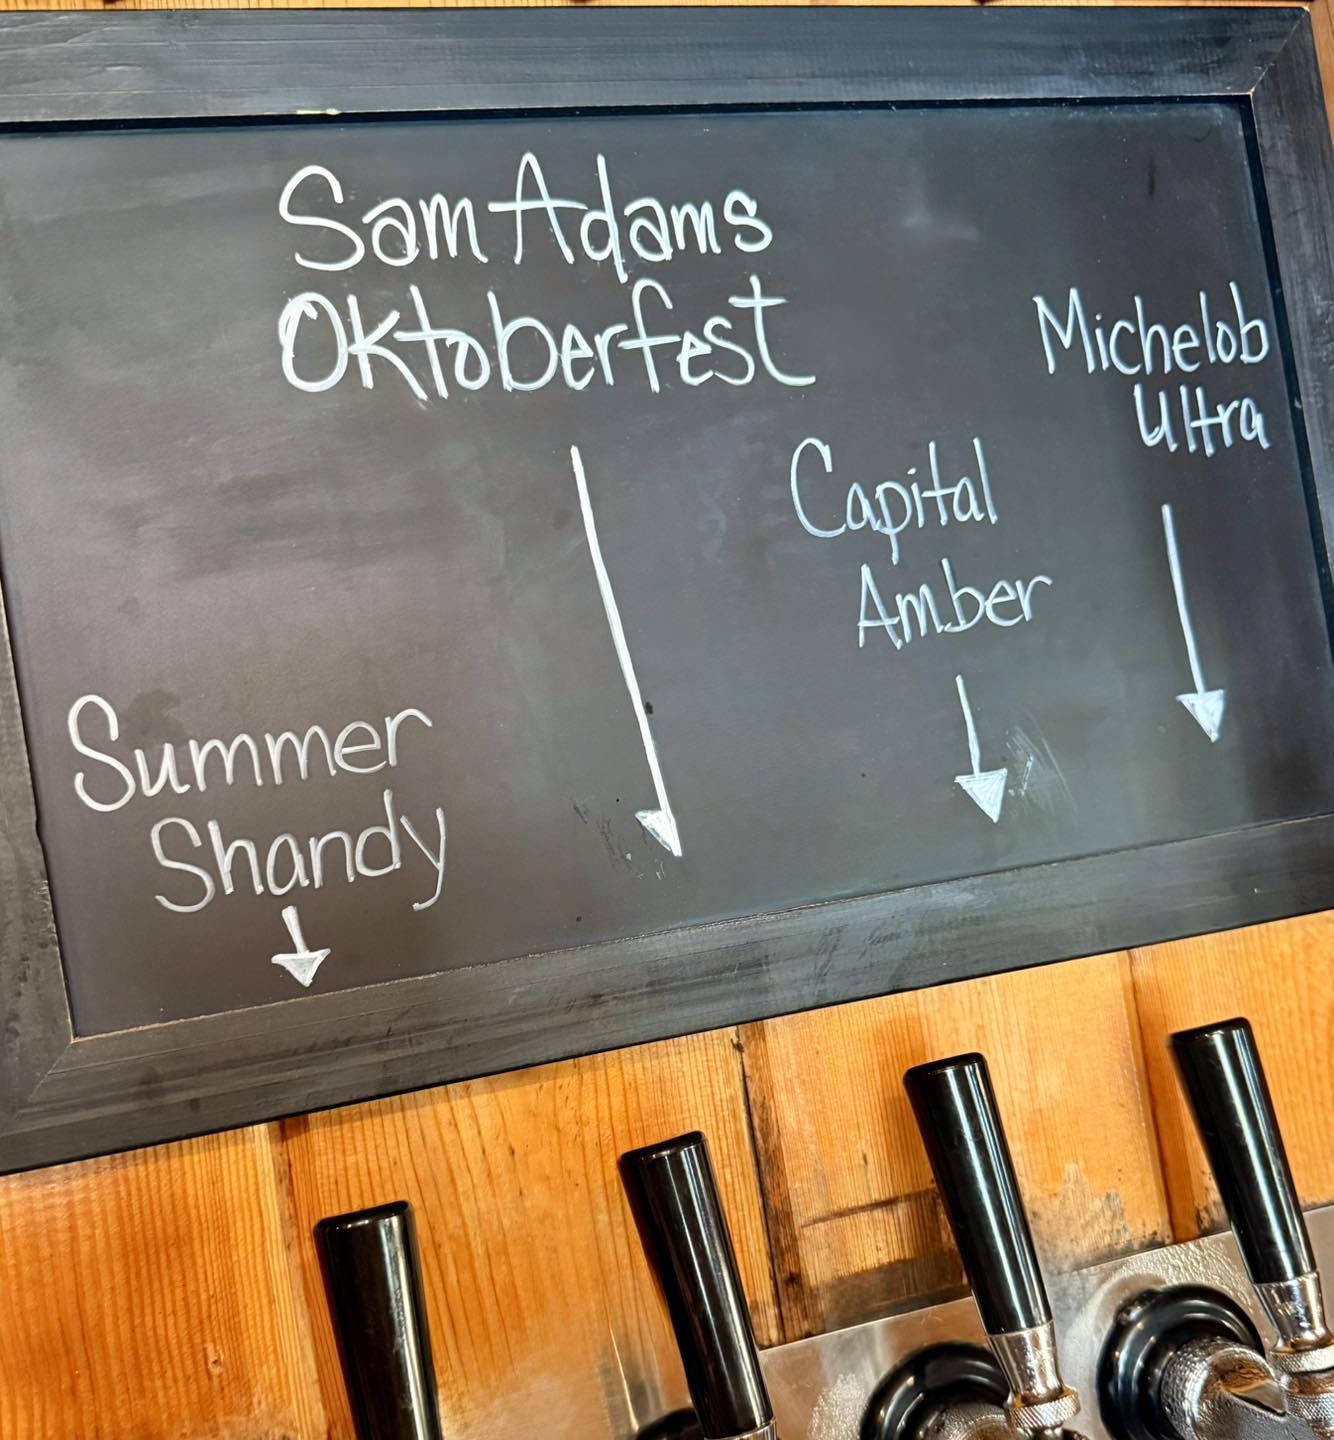 Sam Adams
Oktoberfest
Michelob
Ultra
Capital
Amber
Summer
Shandy